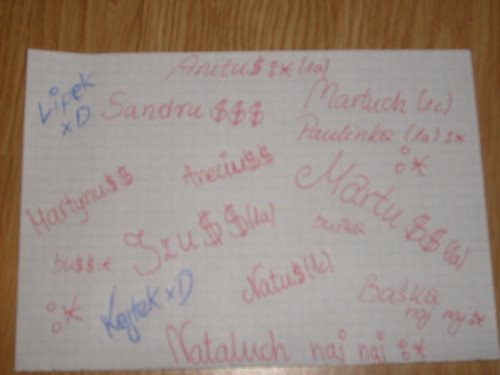 Anitu$ :* (1a)
Lipek
xD
Sandru $$$
Martuch (1c)
Paulinka (1a) :*
:*
Aneciu$$
Martynu$$
Martu$$ (1a)
buśka
Izu$$ (1a)
bu$$:*
Natu$ (1c)
Baśka
naj naj :*
:*
Kojtek xD
Nataluch naj naj :*